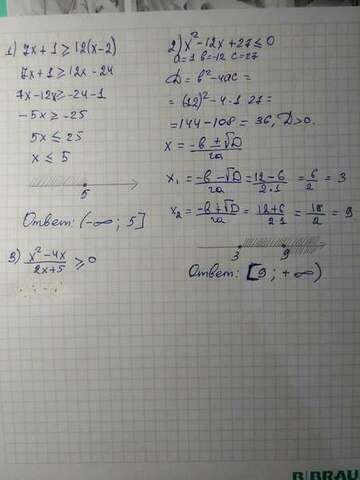 1) 7x+1 ≥ 12(x-2)
7x+1 ≥ 12x-24
7x-12x ≥ -24-1
-5x ≥ -25
5x ≤ 25
x ≤ 5
5
Ответ: (-∞; 5]
3) (x²-4x)/(2x+5) ≥ 0
2) x²-12x+27 ≤ 0
a=1 b=-12 c=27
D = b²-4ac =
= (12)²-4·1·27 =
= 144-108 = 36, D>0.
x = (-b ± √D)/2a
x₁ = (-b-√D)/2a = (12-6)/2·1 = 6/2 = 3
x₂ = (-b+√D)/2a = (12+6)/2·1 = 18/2 = 9
3 9
Ответ: [9; +∞)
B|BRAU